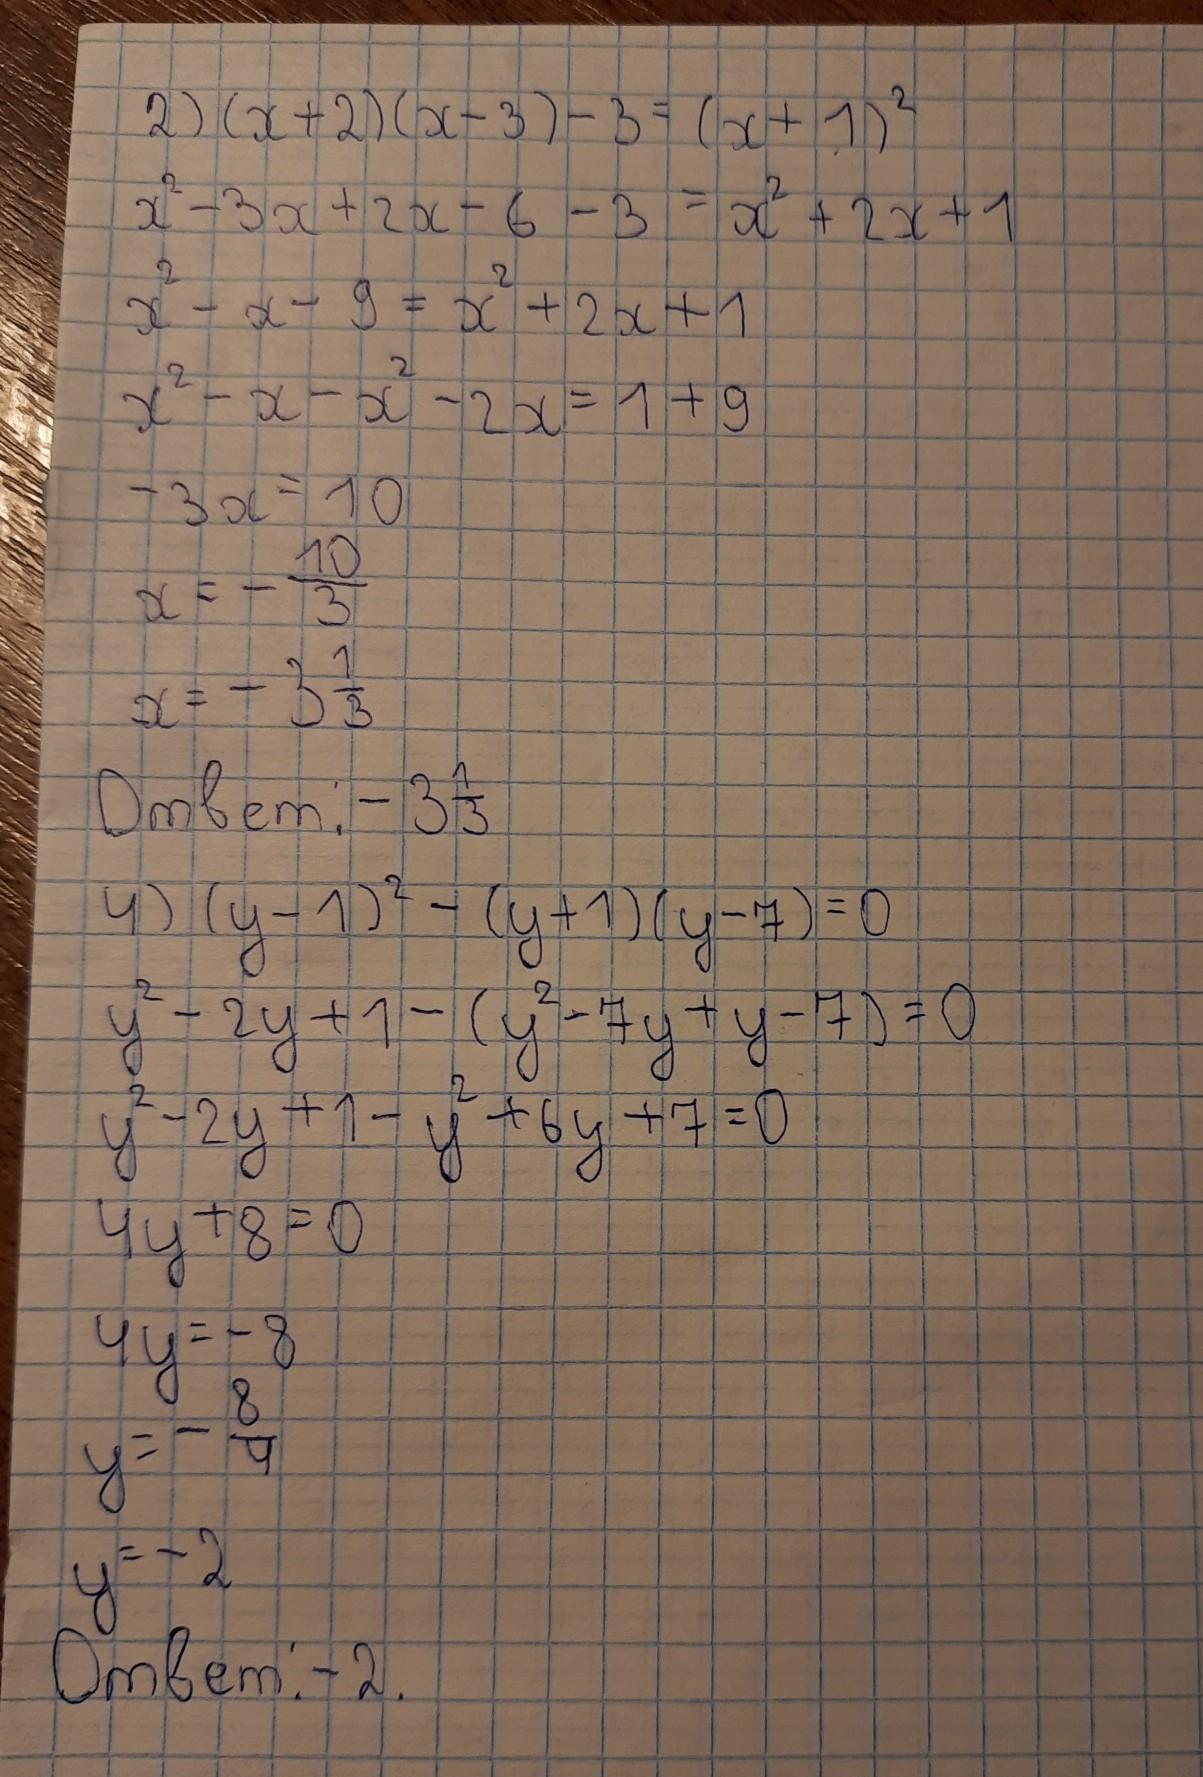 2) (x+2)(x-3)-3=(x+1)²
x²-3x+2x-6-3=x²+2x+1
x²-x-9=x²+2x+1
x²-x-x²-2x=1+9
-3x=10
x=-10/3
x=-3 1/3
Ответ: -3 1/3
4) (y-1)²-(y+1)(y-7)=0
y²-2y+1-(y²-7y+y-7)=0
y²-2y+1-y²+6y+7=0
4y+8=0
4y=-8
y=-8/4
y=-2
Ответ: -2.